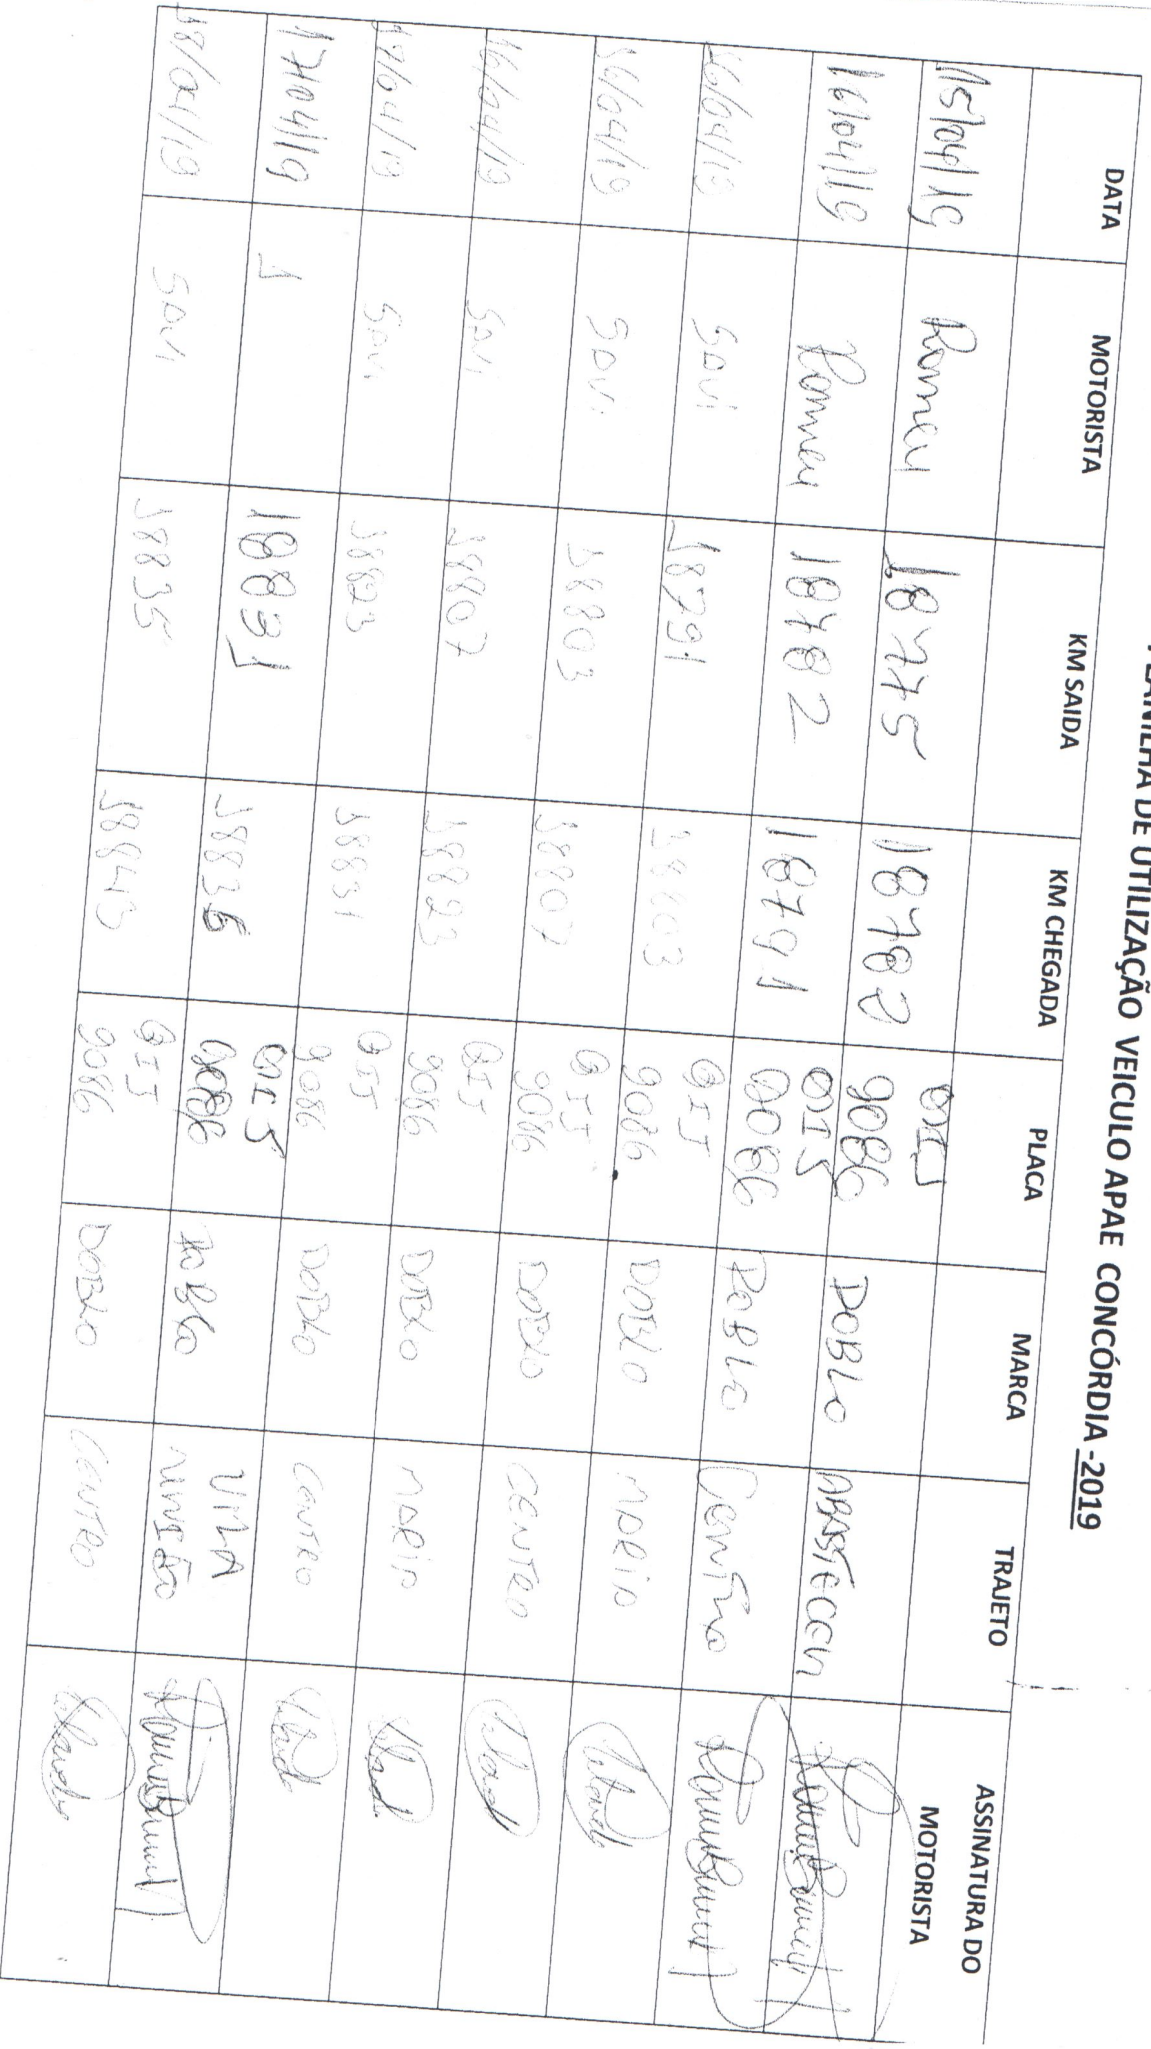 PLANILHA DE UTILIZAÇÃO VEICULO APAE CONCÓRDIA -2019
DATA MOTORISTA KM SAIDA KM CHEGADA PLACA MARCA TRAJETO ASSINATURA DO MOTORISTA
15/04/19 Romeu 18775 18782 QIJ 9086 DOBLO ABASTECER
16/04/19 Romeu 18782 18791 QIJ 9086 DOBLO CENTRO
16/04/19 SAVI 18791 18803 QIJ 9086 DOBLO MARIA
16/04/19 SAVI 18803 18807 QIJ 9086 DOBLO CENTRO
16/04/19 SAVI 18807 18823 QIJ 9086 DOBLO MARIA
17/04/19 SAVI 18823 18831 QIJ 9086 DOBLO CENTRO
17/04/19 18831 18835 QIJ 9086 DOBLO VILA UNIÃO
18/04/19 SAVI 18835 18843 QIJ 9086 DOBLO CENTRO